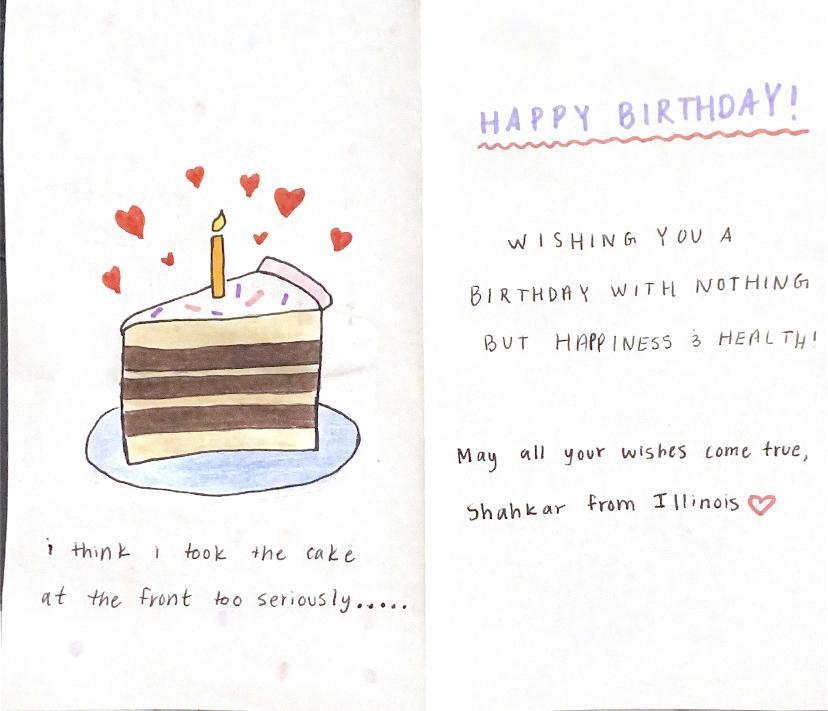 i think i took the cake
at the front too seriously.....
HAPPY BIRTHDAY!
WISHING YOU A
BIRTHDAY WITH NOTHING
BUT HAPPINESS & HEALTH!
May all your wishes come true,
Shahkar from Illinois